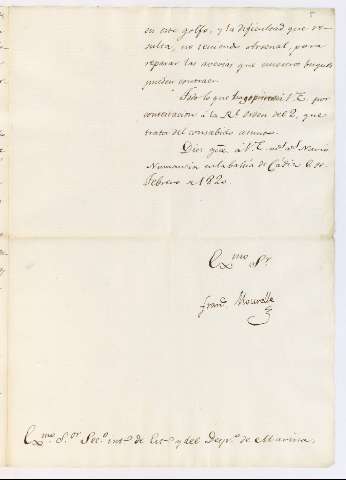 en este golfo, y la dificultad que re-
sulta, no teniendo Arsenal, para
reparar las averias que nuestros buques
pueden contraer.
Todo lo que hago presente á V.E. por
contestacion á la Rl. orden del 2, que
trata del consabido asunto.
Dios gue. á V.E. ms. as. Navio
Numancia en la bahia de Cadiz 6 de
Febrero de 1820.
Exmo. Sr.
Franco. Mourelle
Exmo. Sor. Seco. into. de Esto. y del Despo. de Marina.